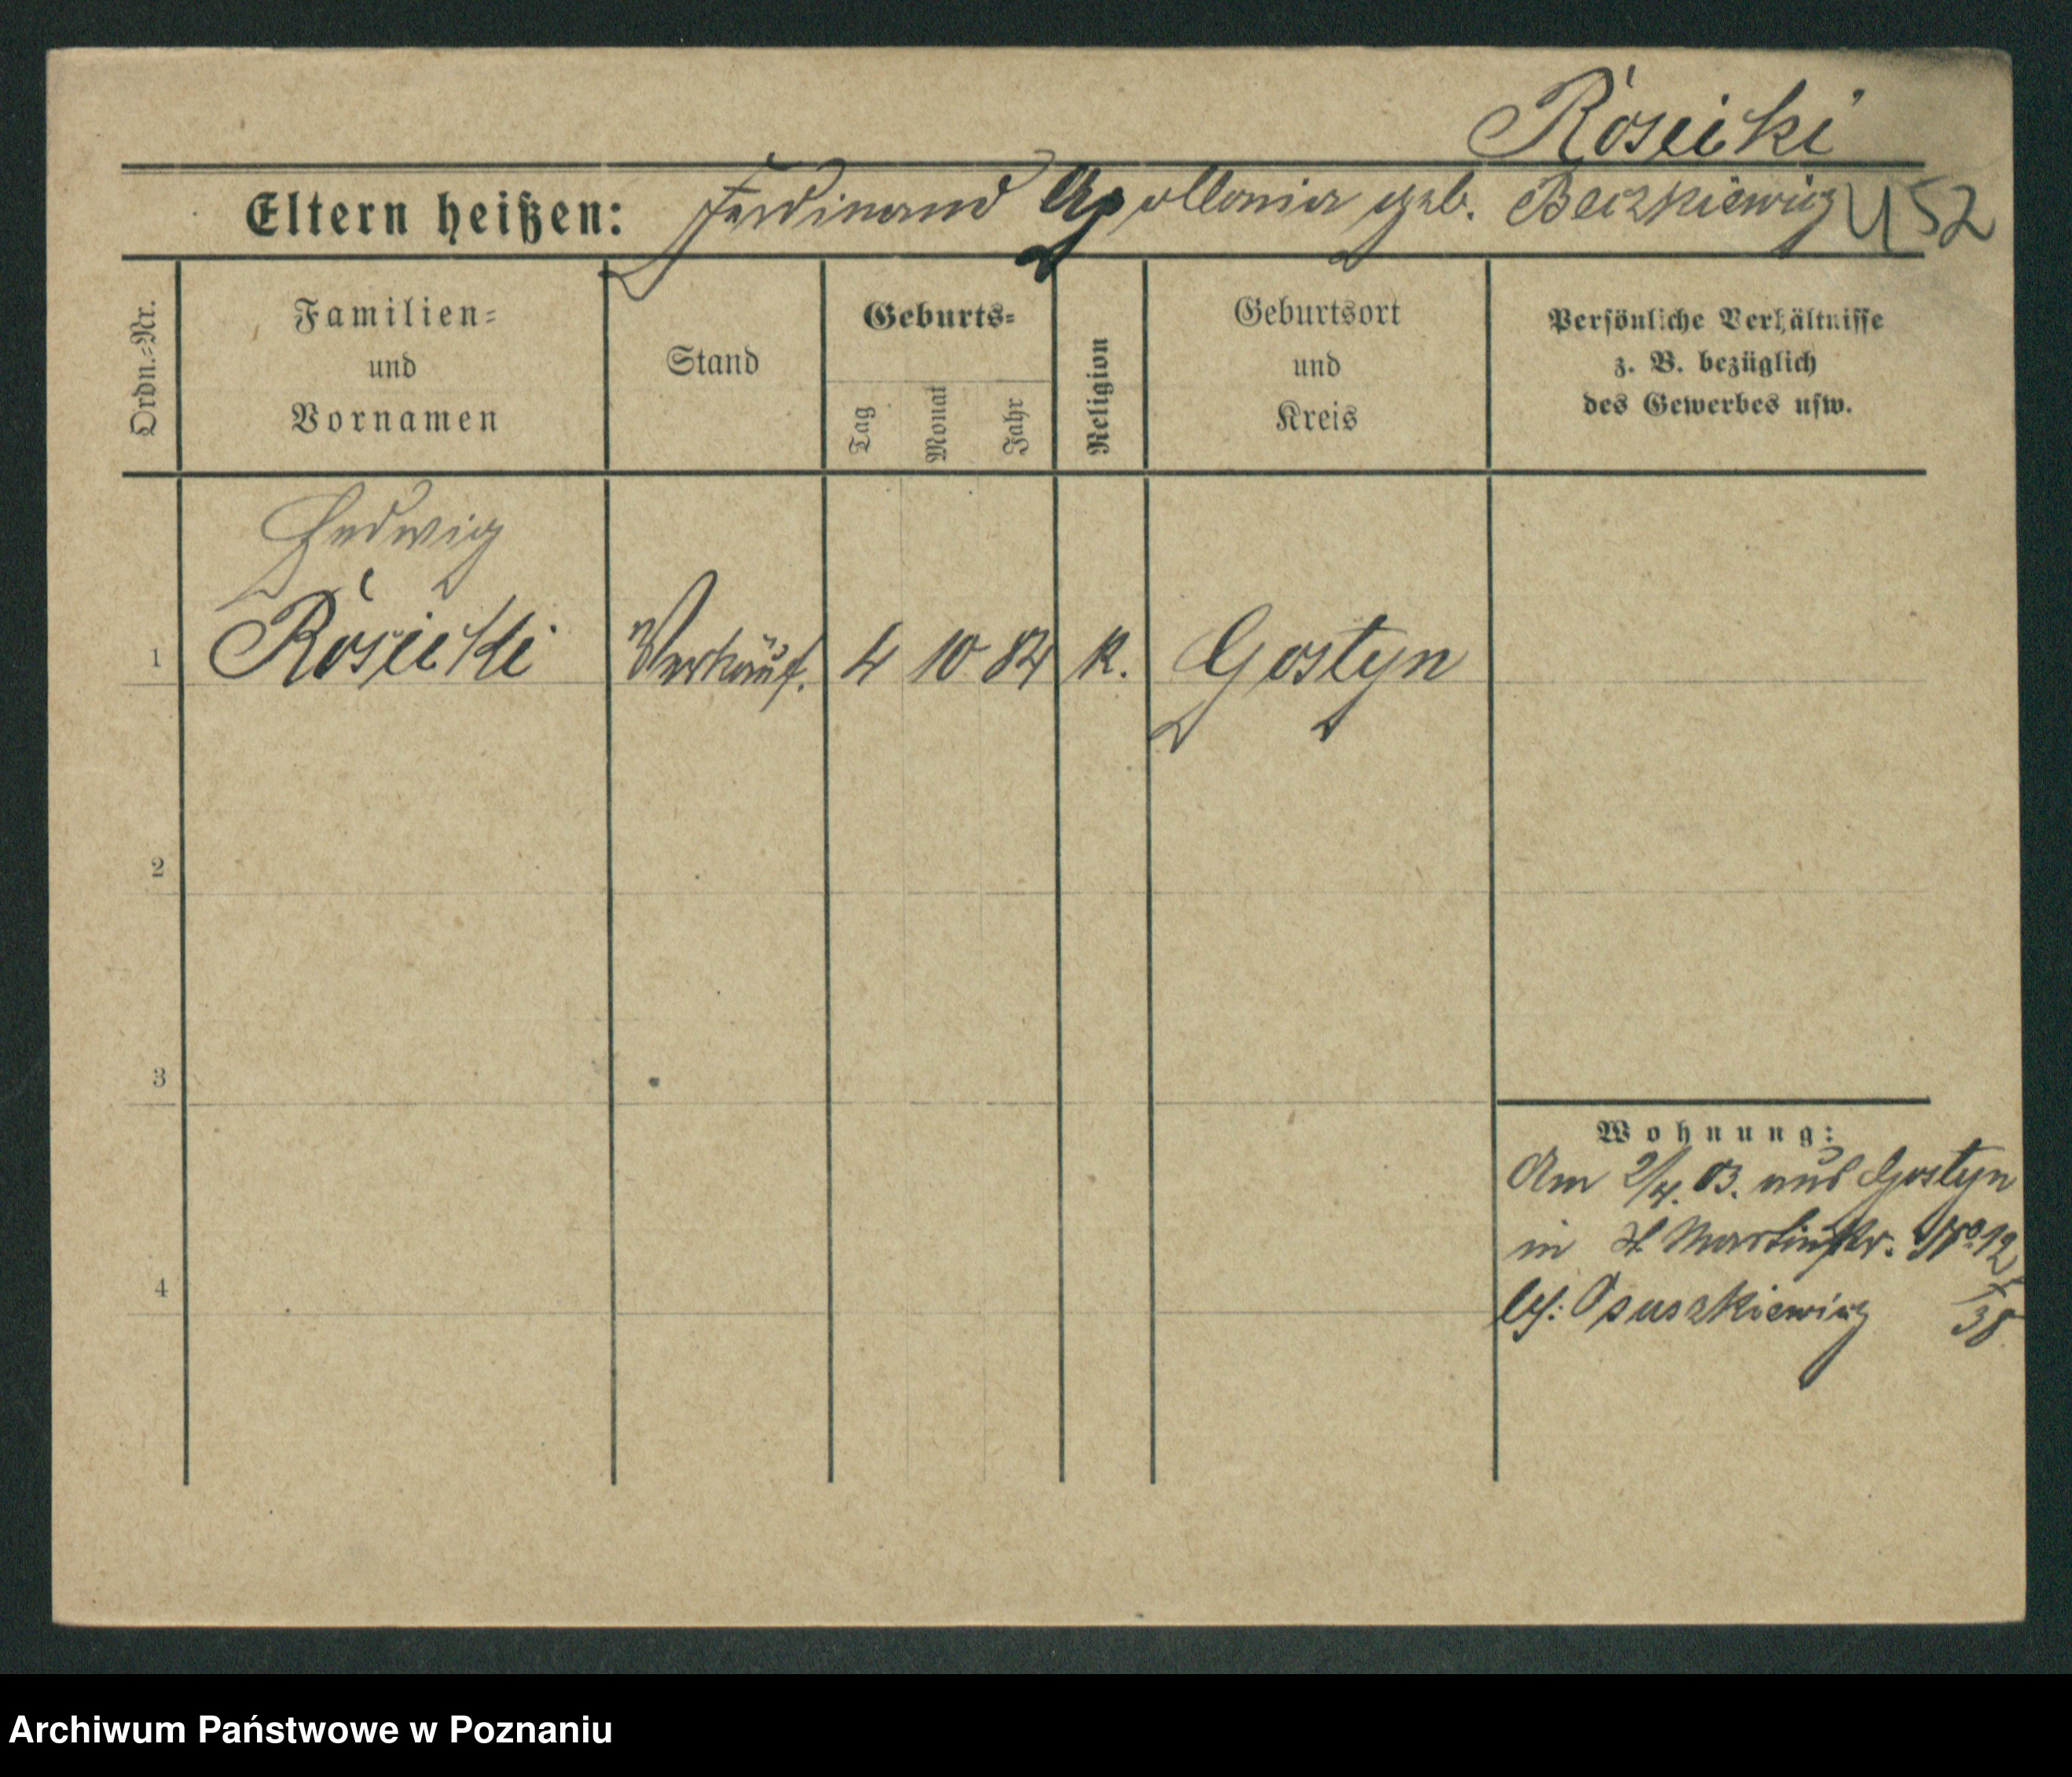 Rósicki
Eltern heißen: Ferdinand Apollonia geb. Beczkiewicz U 52
Ordn.=Nr.
Familien=
und
Vornamen
Stand
Geburts=
Tag
Monat
Jahr
Religion
Geburtsort
und
Kreis
Persönliche Verhältnisse
z. B. bezüglich
des Gewerbes usw.
Hedwig
1 Rósicki Verkäuf. 4 10 84 k. Gostyn
2
3
4
Wohnung:
Am 2/4. 03. aus Gostyn
in St Martinstr. No 12
bei: Opuszkiewicz
38
Archiwum Państwowe w Poznaniu